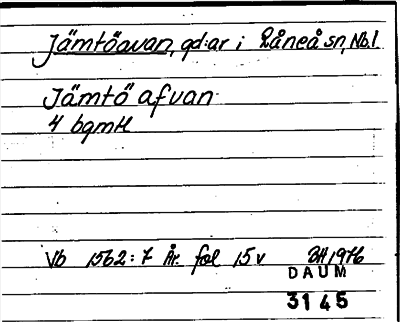 Jämtöavan, gd:ar i Råneå sn, Nb.l.
Jämtö afvan
4 bgmtl
Vb 1562:7 År. fol 15 v BH 1976
DAUM
3145